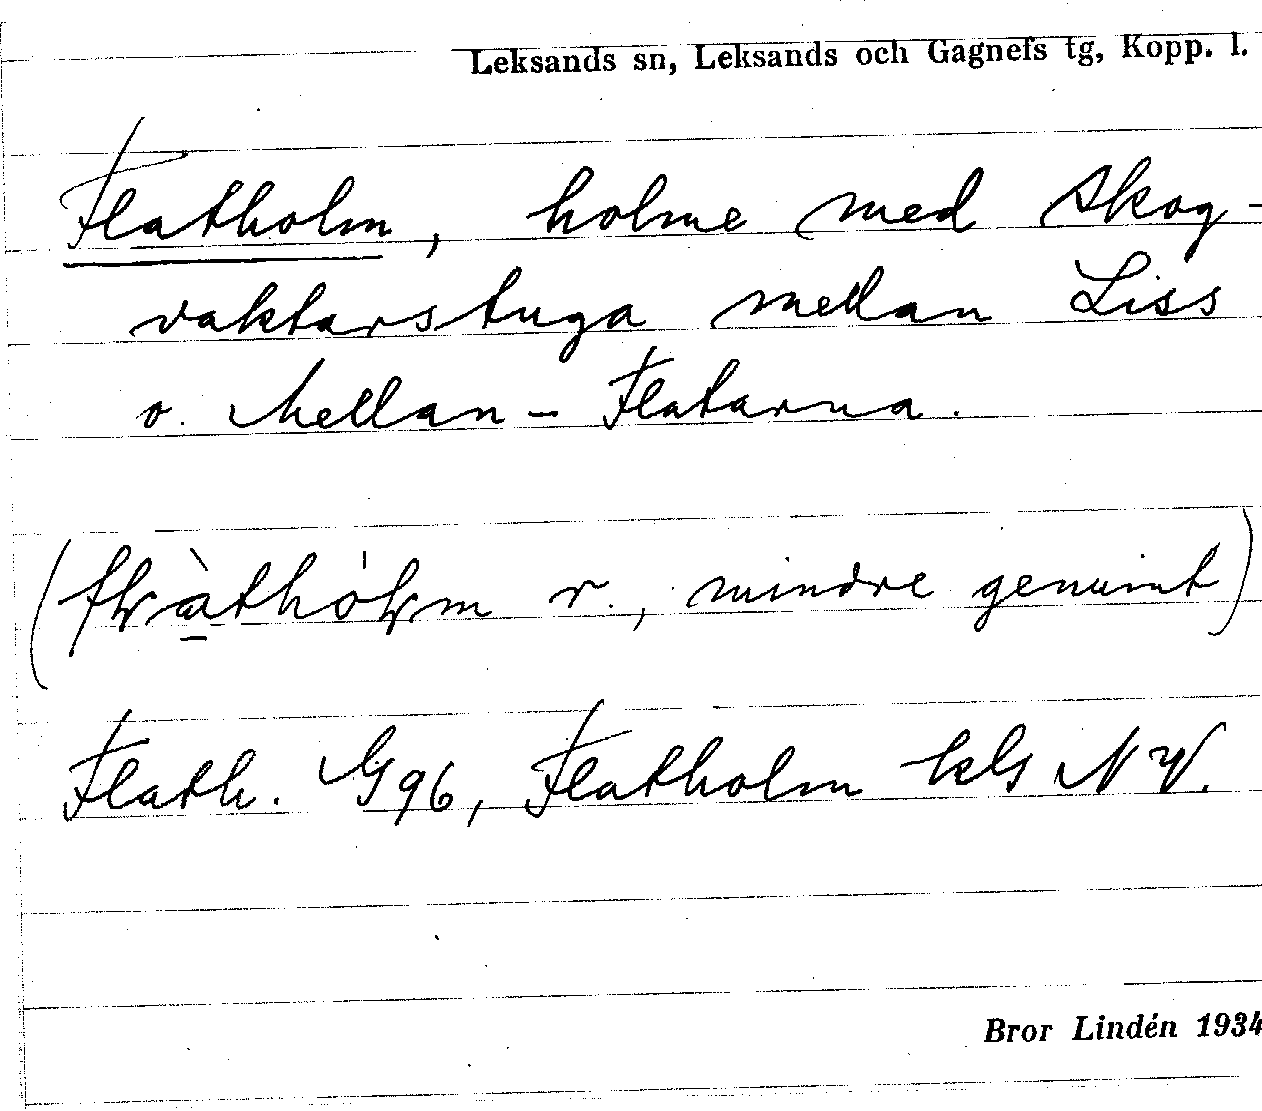 Leksands sn, Leksands och Gagnefs tg, Kopp. l.
Flatholm, holme med skog-
vaktarstuga mellan Liss
o. Mellan-Flatarna.
r., mindre genuint)
Flath. G96, Flatholm NV.
Bror Lindén 1934